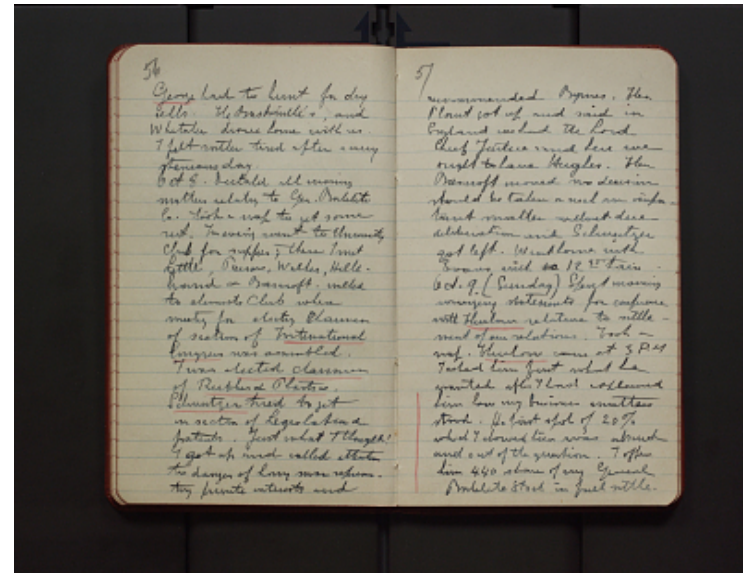 56
George had to hunt for dry
cells. The Baskerville's, and
Whitaker drove home with us.
I felt rather tired after a very
strenuous day.
Oct 8. Dictated all morning
matters relating to Gen. Bakelite
Co. Took a nap to get some
rest. In evening went to University
Club for supper; there I met
Little, Parsons, Walker, Hille-
brand & Bancroft. walked
to Chemists Club where
meeting for electing Chairmen
of section of International
Congress was assembled.
I was elected chairman
of Rubber & Plastics.
Schweitzer tried to get
in section of Legislation &
patents. Just what I thought!
I got up and called attention
to danger of having man represen-
ting private interests and
57
recommended Byrnes. Then
got up and said in
England we had the Lord
Chief Justice and here we
ought to have Hughes. Then
Bancroft moved no decision
should be taken on such an impor-
tant matter without due
deliberation and Schweitzer
got left. Went home with
Evans with 12 train.
Oct. 9. (Sunday) Spent morning
arranging statements for conference
with Thurlow relative to settle-
ment of our relations. Took a
nap. Thurlow came at 3 P.M
I asked him just what he
wanted after I had explained
him how my business matters
stood. He first spoke of 20%
which I showed him was absurd
and out of the question. I offer
him 440 shares of my General
Bakelite Stock in full settle-